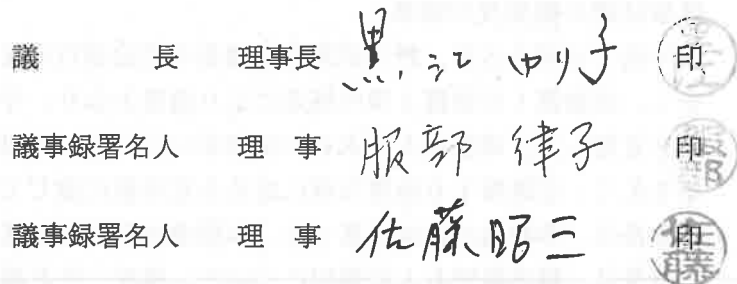 議長 理事長 黒江 ゆり子 印
議事録署名人 理事 服部 律子 印
議事録署名人 理事 佐藤 昭三 印